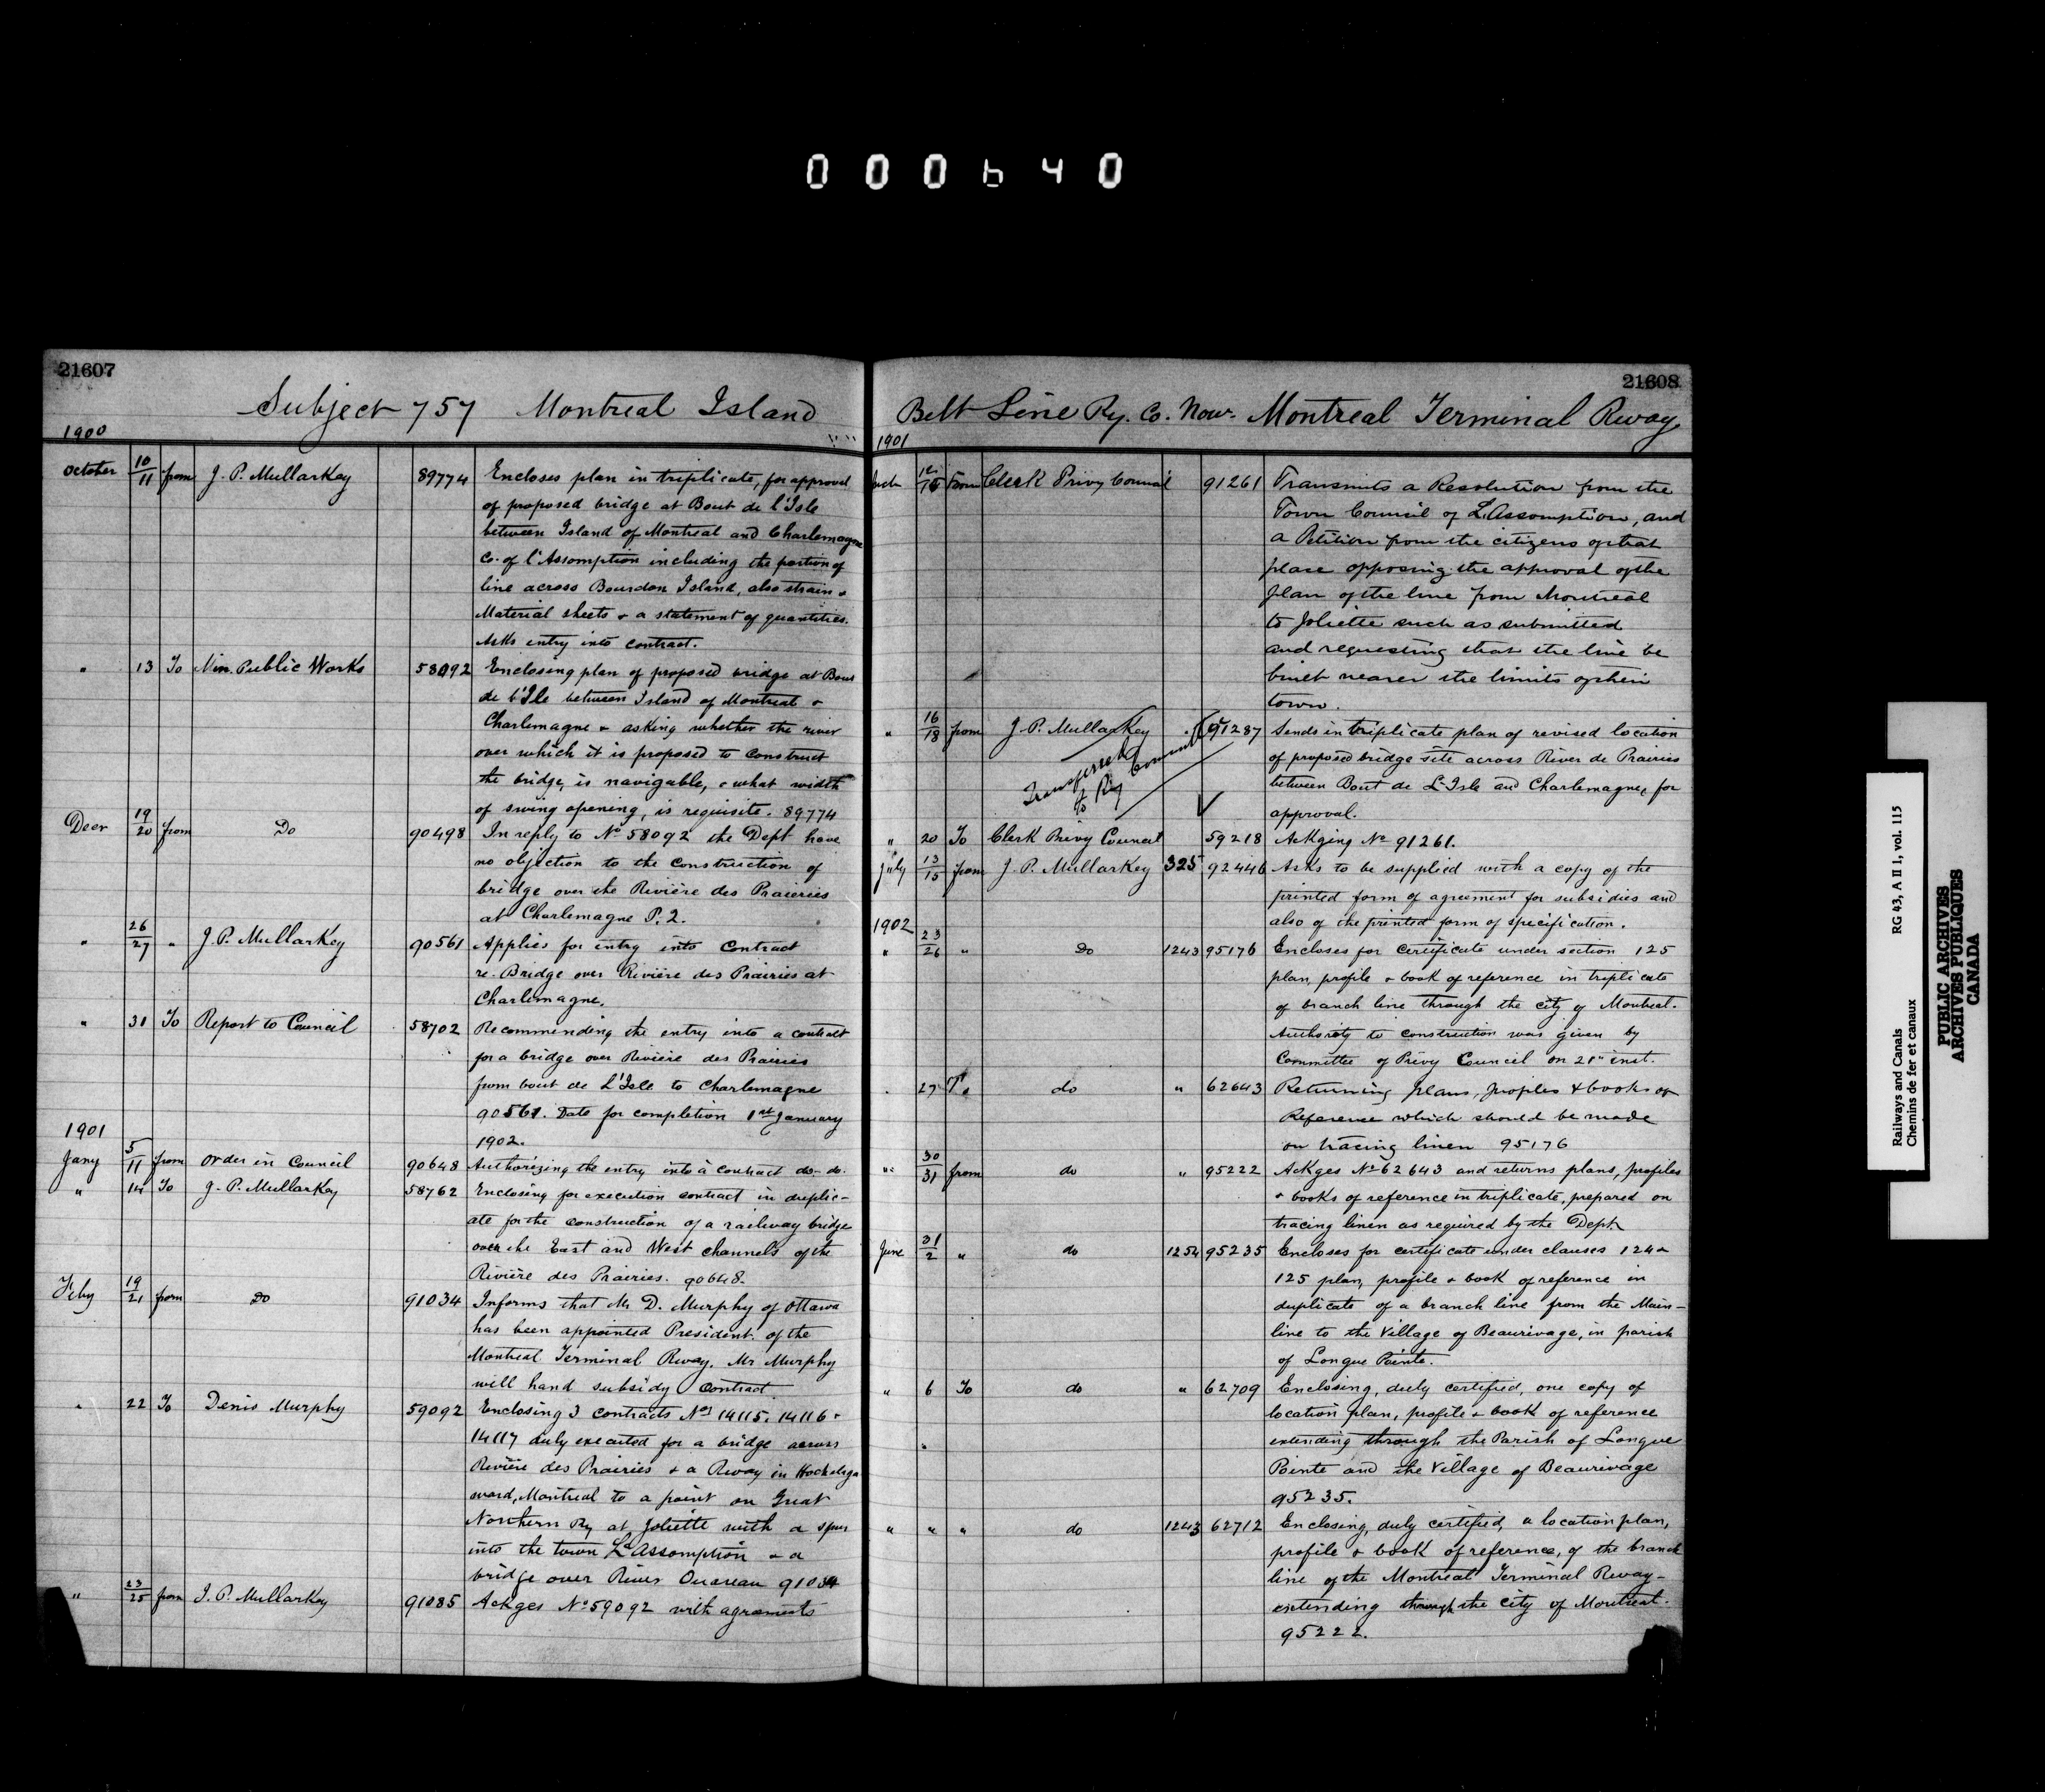 000640
21607
Subject 757 Montreal Island
1900
October 10/11 from J. P. Mullarkey 89774 Encloses plan in triplicate, for approval
of proposed bridge at Bout de l'Isle
between Island of Montreal and Charlemagne
Co. of l'Assomption including the portion of
line across Bourdon Island, also strain &
Material sheets & a statement of quantities.
Asks entry into contract.
" 13 To Min. Public Works 58092 Enclosing plan of proposed bridge at Bout
de l'Ile between Island of Montreal &
Charlemagne & asking whether the river
over which it is proposed to construct
the bridge, is navigable, & what width
of swing opening, is requisite. 89774
Decr 19/20 from Do 90498 In reply to No 58092 the Dept have
no objection to the construction of
bridge over the Rivière des Praieries
at Charlemagne P.2.
" 26/27 " J. P. Mullarkey 90561 Applies for entry into Contract
re- Bridge over Rivière des Prairies at
Charlemagne.
" 31 To Report to Council 58702 Recommending the entry into a contract
for a bridge over Rivière des Prairies
from bout de L'Isle to Charlemagne
90561. Date for completion 1st January
1902.
1901
Jany 5/11 from Order in Council 90648 Authorizing the entry into a contract do- do-
" 14 To J. P. Mullarkey 58762 Enclosing for execution contract in duplic-
ate for the construction of a railway bridge
over the East and West channels of the
Rivière des Prairies. 90648.
Feby 19/21 from Do 91034 Informs that Mr D. Murphy of Ottawa
has been appointed President. of the
Montreal Terminal Rway. Mr Murphy
will hand subsidy contract.
" 22 To Denis Murphy 59092 Enclosing 3 contracts Nos 14115. 14116 &
14117 duly executed for a bridge across
Rivière des Prairies & a Rway in Hochelaga
ward, Montreal to a point on Great
Northern Ry at Joliette with a spur
into the town L'Assomption & a
bridge over River Ouareau 91034
" 23/25 from J. P. Mullarkey 91085 Ackges No 59092 with agreements
21608
Belt Line Ry. Co. Now. Montreal Terminal Rway.
1901
from Clerk Privy Council 91261 Transmits a Resolution from the
Town Council of L'Assomption, and
a Petition from the citizens of that
place opposing the approval of the
plan of the line from Montreal
to Joliette such as submitted
and requesting that the line be
built nearer the limits of their
town.
" 16/18 from J. P. Mullarkey 91287 Sends in triplicate plan of revised location
of proposed bridge site across River de Prairies
between Bout de L'Isle and Charlemagne, for
approval.
Transferred
to Ry Committee
" 20 To Clerk Privy Council 59218 Ackging No 91261.
July 13/15 from J. P. Mullarkey 325 92446 Asks to be supplied with a copy of the
printed form of agreement for subsidies and
also of the printed form of specification.
1902
" 23/26 " Do 1243 95176 Encloses for certificate under section 125
plan, profile & book of reference in triplicate
of branch line through the city of Montreal.
Authority to construction was given by
Committee of Privy Council on 21st inst.
" 27 To do " 62643 Returning plans, profiles & books of
Reference which should be made
on tracing linen 95176
" 30/31 from do " 95222 Ackges No 62643 and returns plans, profiles
& books of reference in triplicate, prepared on
tracing linen as required by the Dept.
June 31/2 " do 1254 95235 Encloses for certificate under clauses 124 &
125 plan, profile & book of reference in
duplicate of a branch line from the Main-
line to the Village of Beaurivage, in parish
of Longue Pointe.
" 6 To do " 62709 Enclosing, duly certified, one copy of
location plan, profile & book of reference
extending through the Parish of Longue
Pointe and the Village of Beaurivage
95235.
" " " do 1243 62712 Enclosing, duly certified, a location plan,
profile & book of reference, of the branch
line of the Montreal Terminal Rway-
extending through the city of Montreal.
95222.
Railways and Canals RG 43, A II 1, vol. 115
Chemins de fer et canaux
PUBLIC ARCHIVES
ARCHIVES PUBLIQUES
CANADA